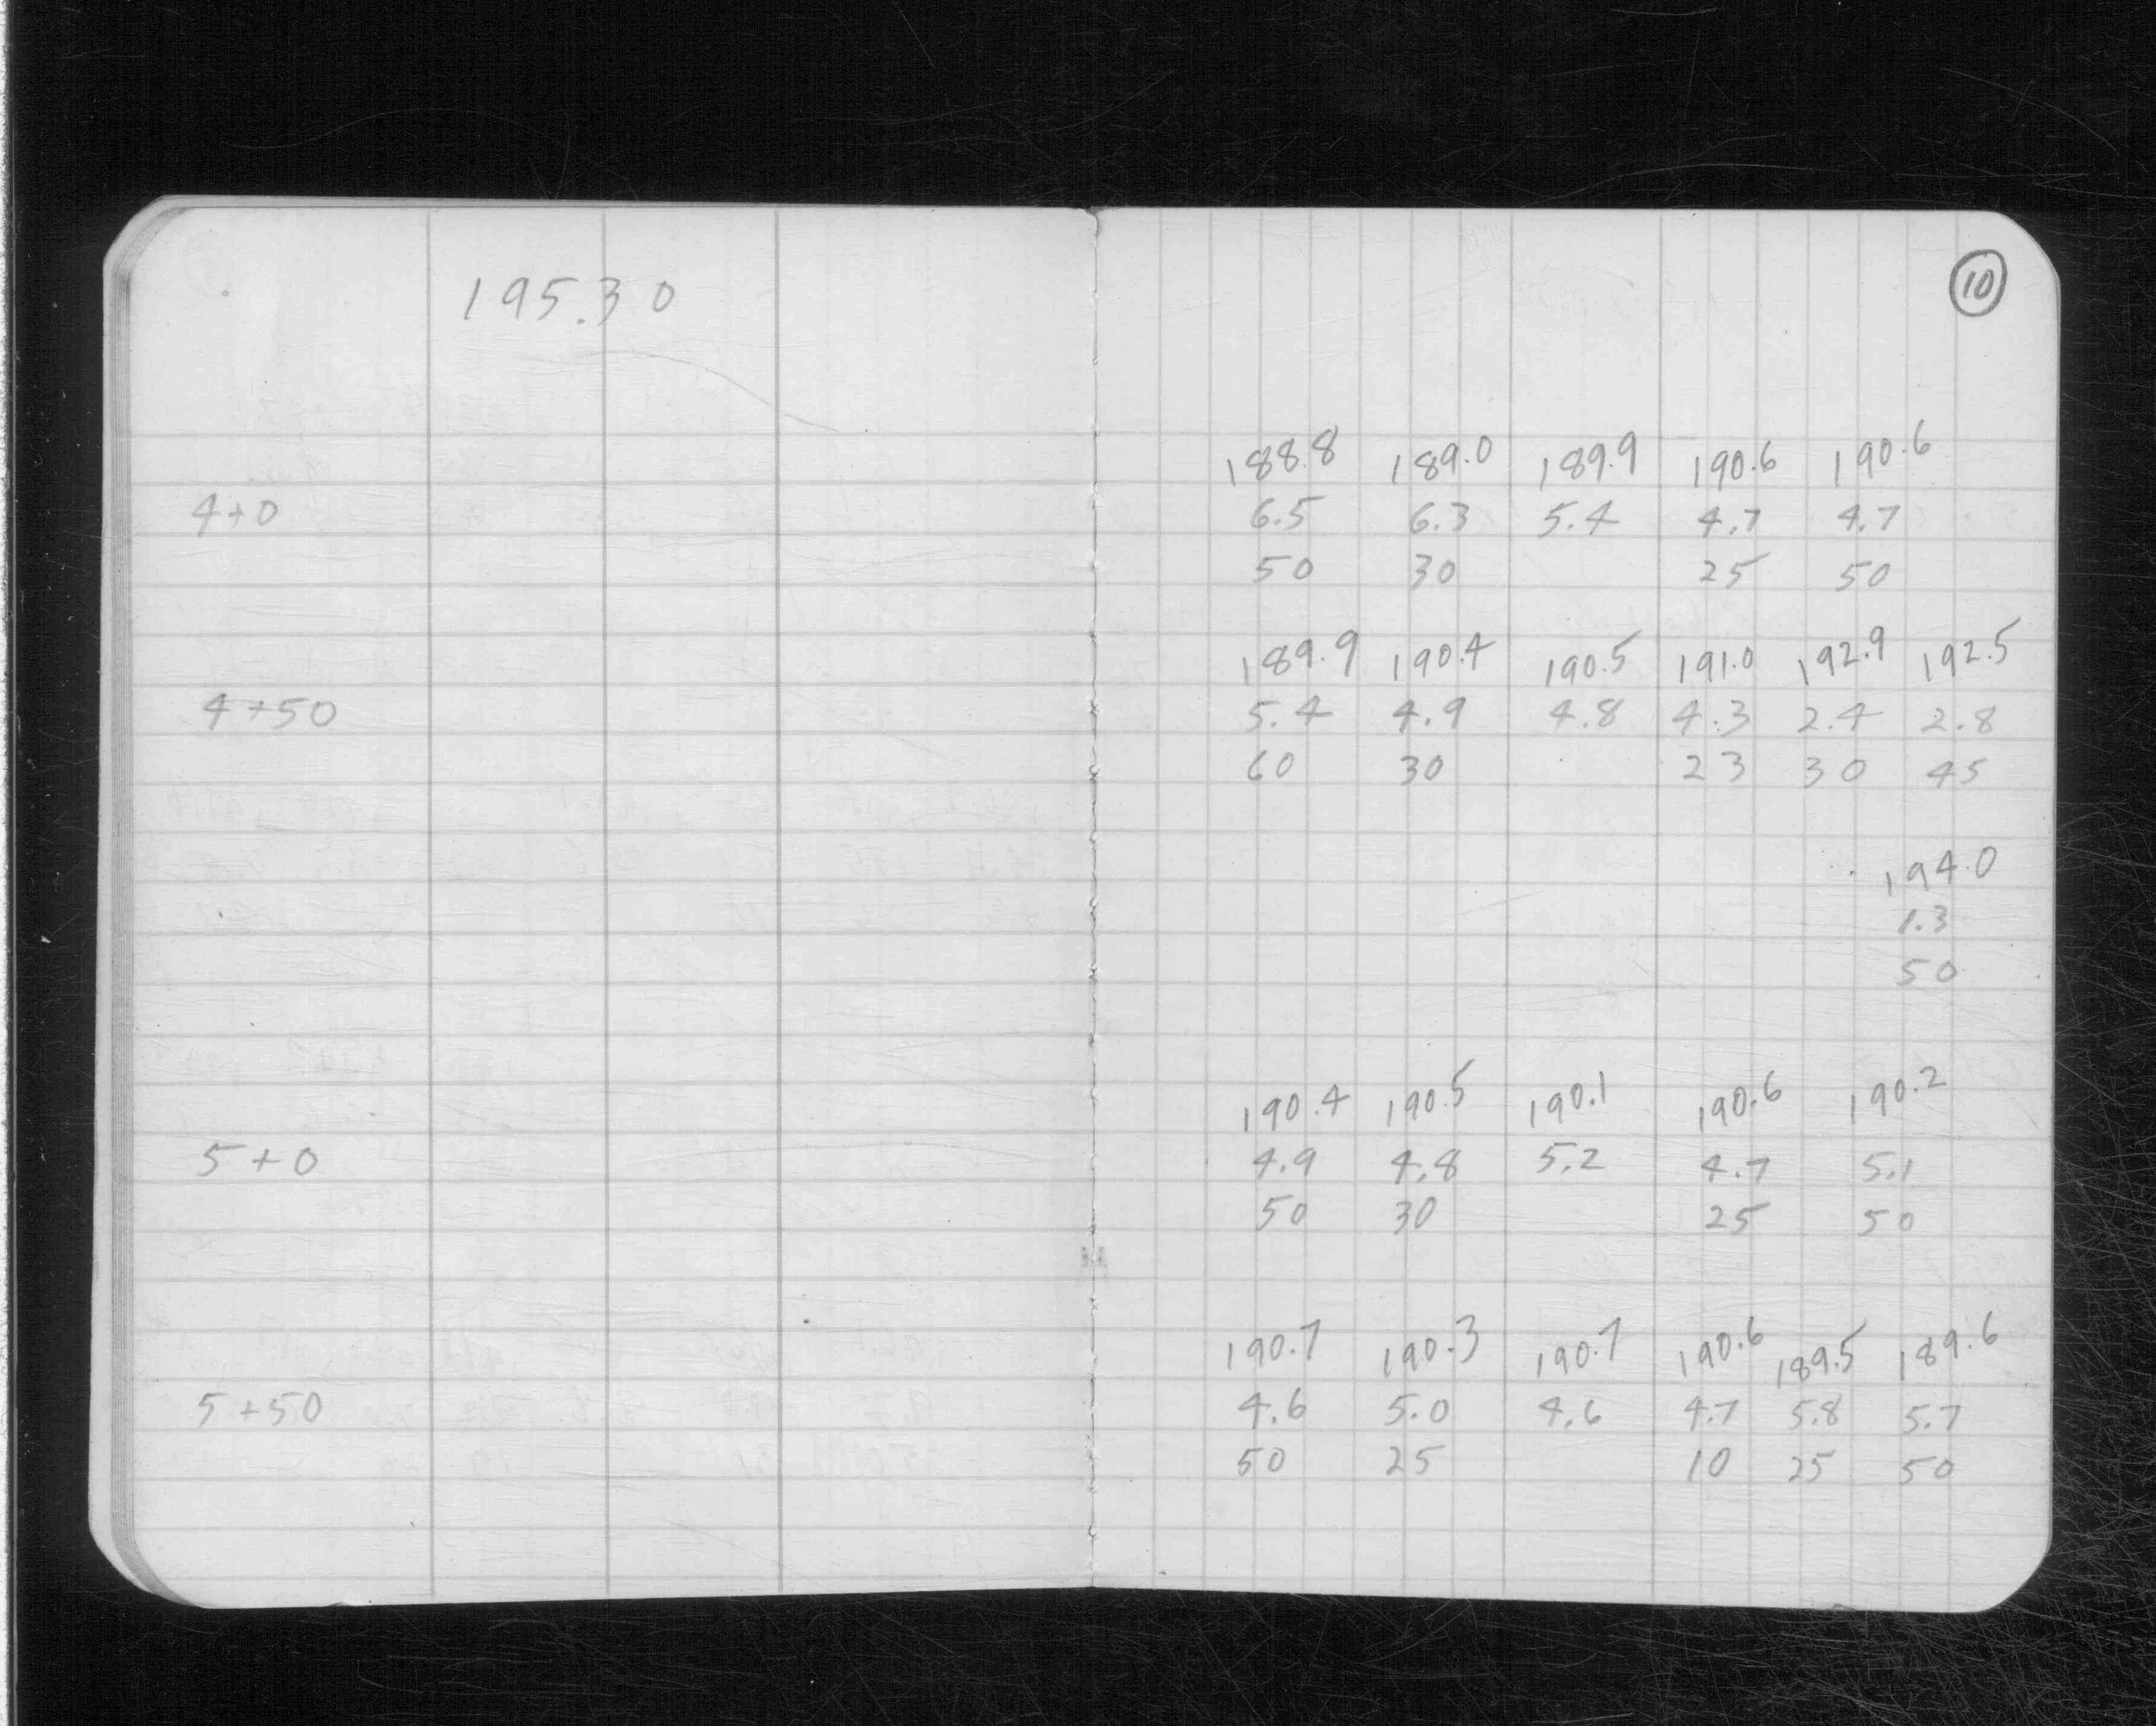 195.30
10
188.8 189.0 189.9 190.6 190.6
4+0 6.5 6.3 5.4 4.7 4.7
50 30 25 50
189.9 190.4 190.5 191.0 192.9 192.5
4+50 5.4 4.9 4.8 4.3 2.4 2.8
60 30 23 30 45
194.0
1.3
50
190.4 190.5 190.1 190.6 190.2
5+0 4.9 4.8 5.2 4.7 5.1
50 30 25 50
190.7 190.3 190.7 190.6 189.5 189.6
5+50 4.6 5.0 4.6 4.7 5.8 5.7
50 25 10 25 50